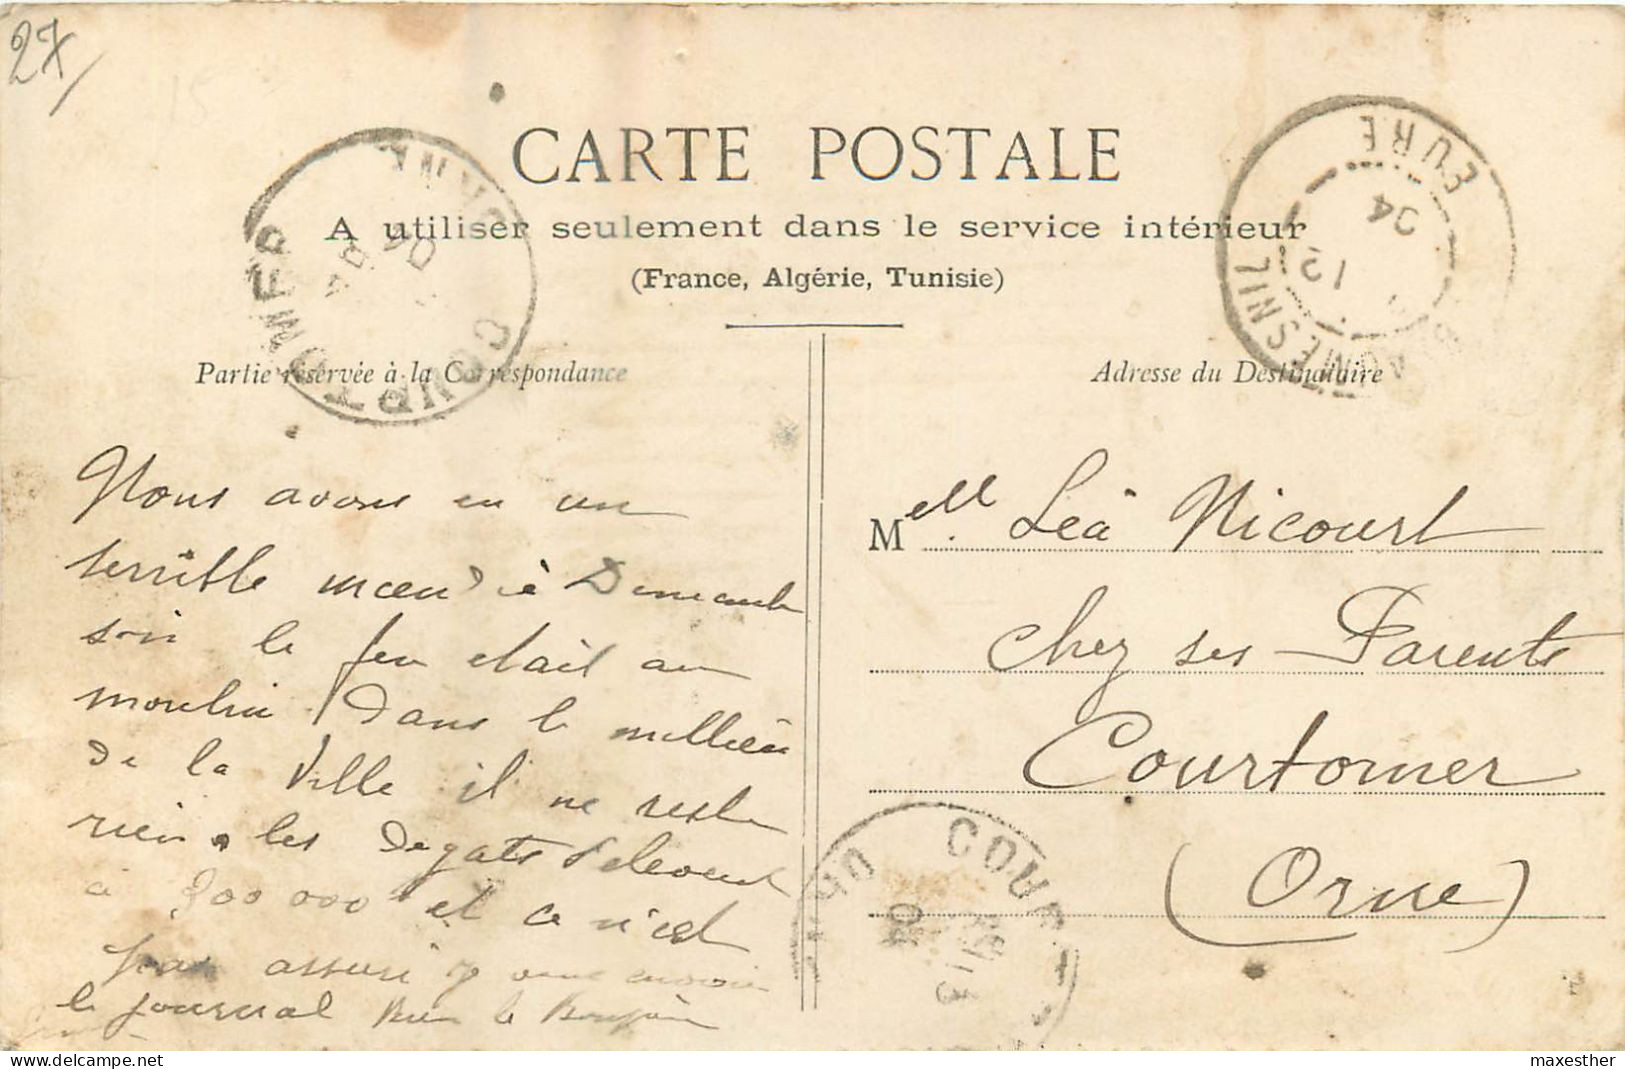 27
CARTE POSTALE
A utiliser seulement dans le service intérieur
(France, Algérie, Tunisie)
Partie réservée à la Correspondance
Adresse du Destinataire
COURTOMER
ORNE
EURE
MESNIL
12
04
Nous avons eu un
terrible incendie Dimanche
soir le feu était au
moulin dans le millieu
de la Ville il ne reste
rien. les degats s'elevent
à 900 000 et ce n'est
pas assuré je vous envoie
le journal Bien le Bonjour
Mell Léa Nicourt
chez ses Parents
Courtomer
(Orne)
COUR
04
delcampe.net
maxesther